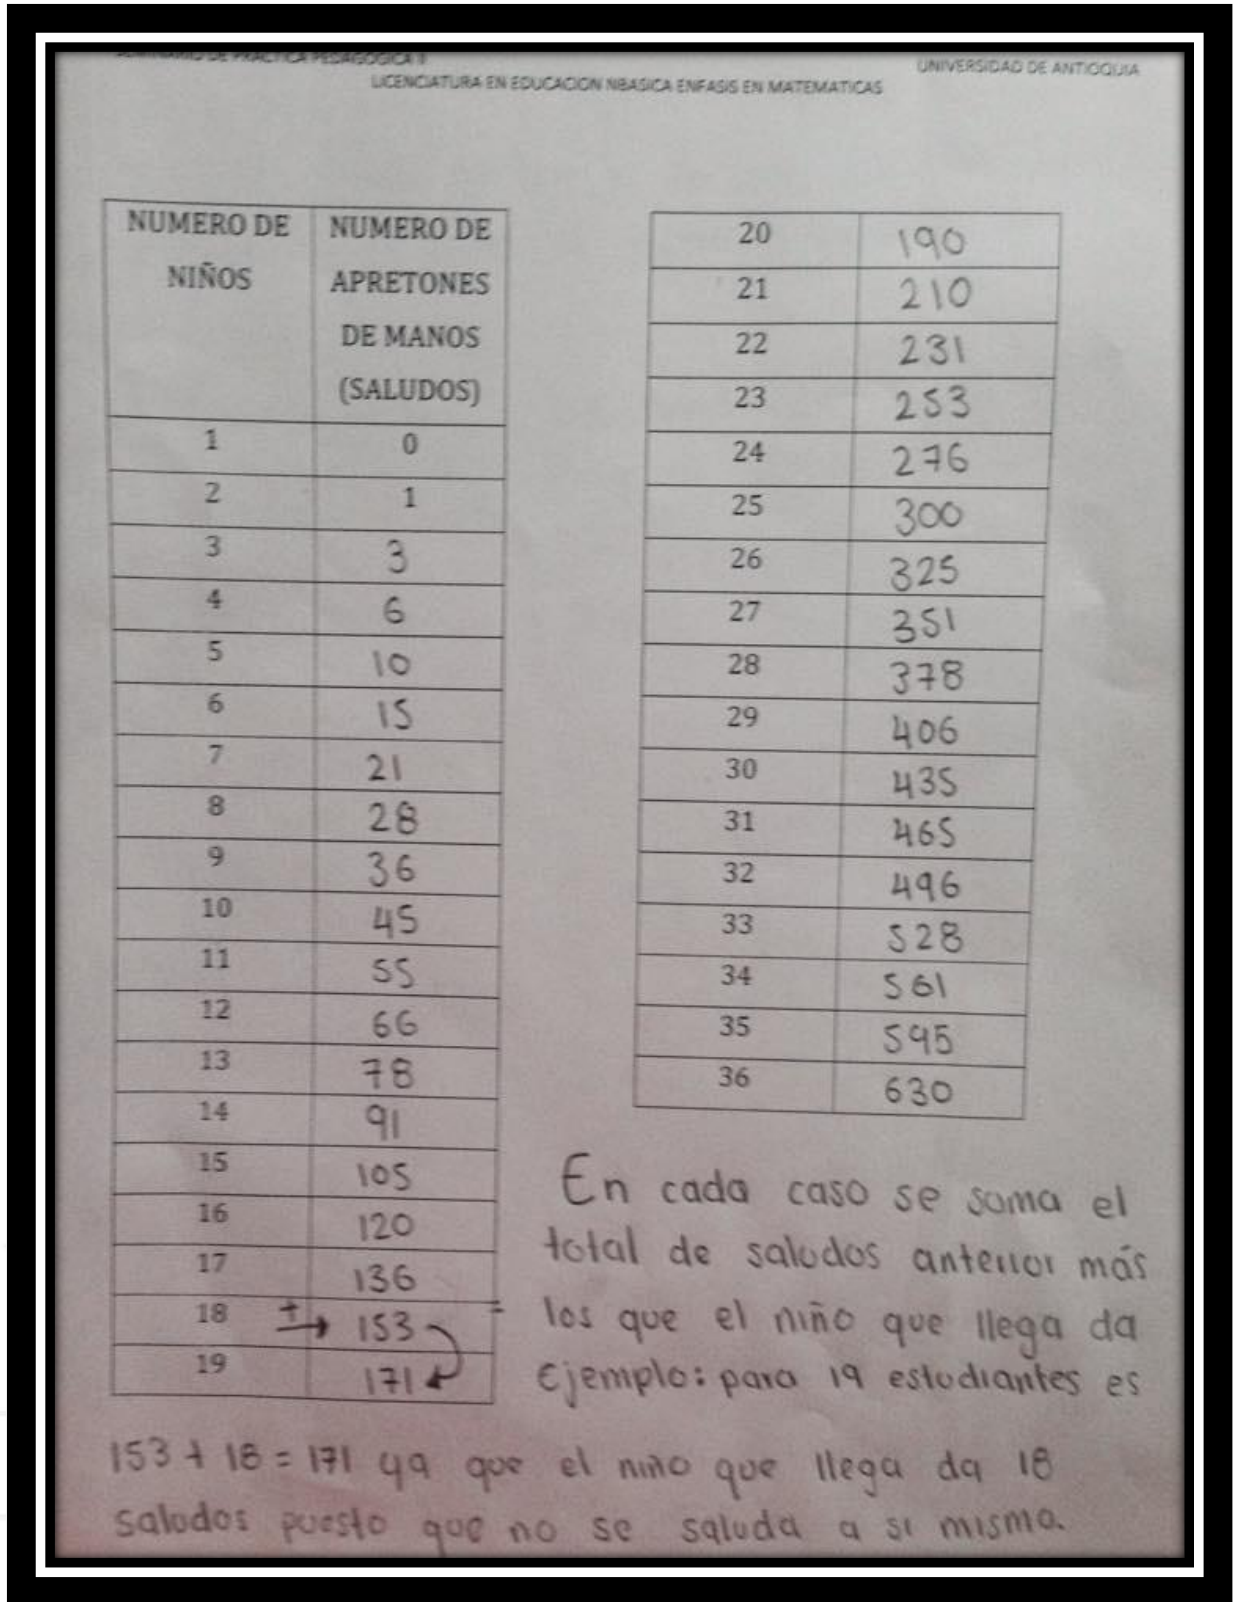 SEMINARIO DE PRACTICA PEDAGOGICA II
UNIVERSIDAD DE ANTIOQUIA
LICENCIATURA EN EDUCACION NBASICA ENFASIS EN MATEMATICAS
NUMERO DE NIÑOS NUMERO DE APRETONES DE MANOS (SALUDOS)
1 0
2 1
3 3
4 6
5 10
6 15
7 21
8 28
9 36
10 45
11 55
12 66
13 78
14 91
15 105
16 120
17 136
18 + 153 =
19 171
20 190
21 210
22 231
23 253
24 276
25 300
26 325
27 351
28 378
29 406
30 435
31 465
32 496
33 528
34 561
35 595
36 630
En cada caso se suma el
total de saludos anterior más
los que el niño que llega da
Ejemplo: para 19 estudiantes es
153 + 18 = 171 ya que el niño que llega da 18
saludos puesto que no se saluda a si mismo.